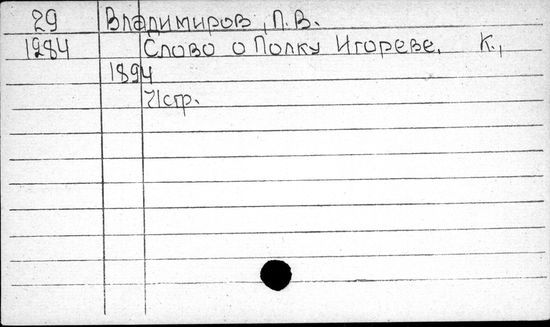 29 Владимиров, П. В.
1284 Слово о Полку Игореве. К.,
1894
71 стр.